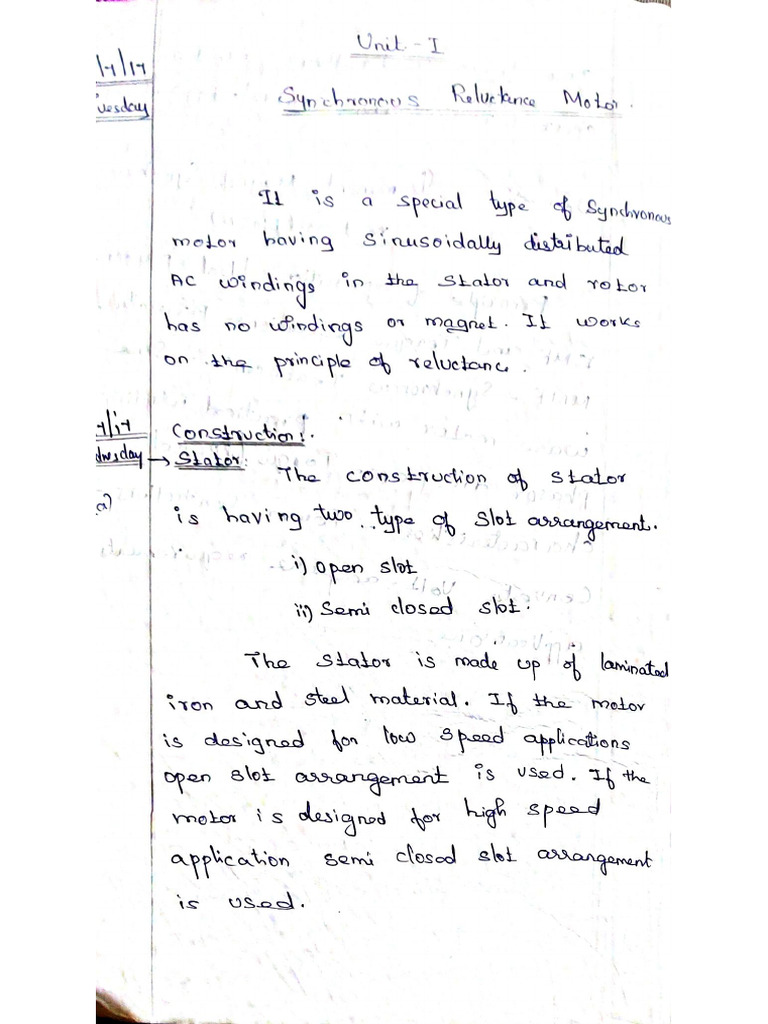 Unit - I
/7/17
uesday
Synchronous Reluctance Motor.
It is a special type of Synchronous
motor having sinusoidally distributed
AC windings in the stator and rotor
has no windings or magnet. It works
on the principle of reluctance.
7/17
dnesday
Construction:.
→ Stator:
The construction of stator
a)
is having two type of slot arrangement.
i) open slot
ii) Semi closed slot.
The stator is made up of laminated
iron and steel material. If the motor
is designed for low speed applications
open slot arrangement is used. If the
motor is designed for high speed
application semi closed slot arrangement
is used.